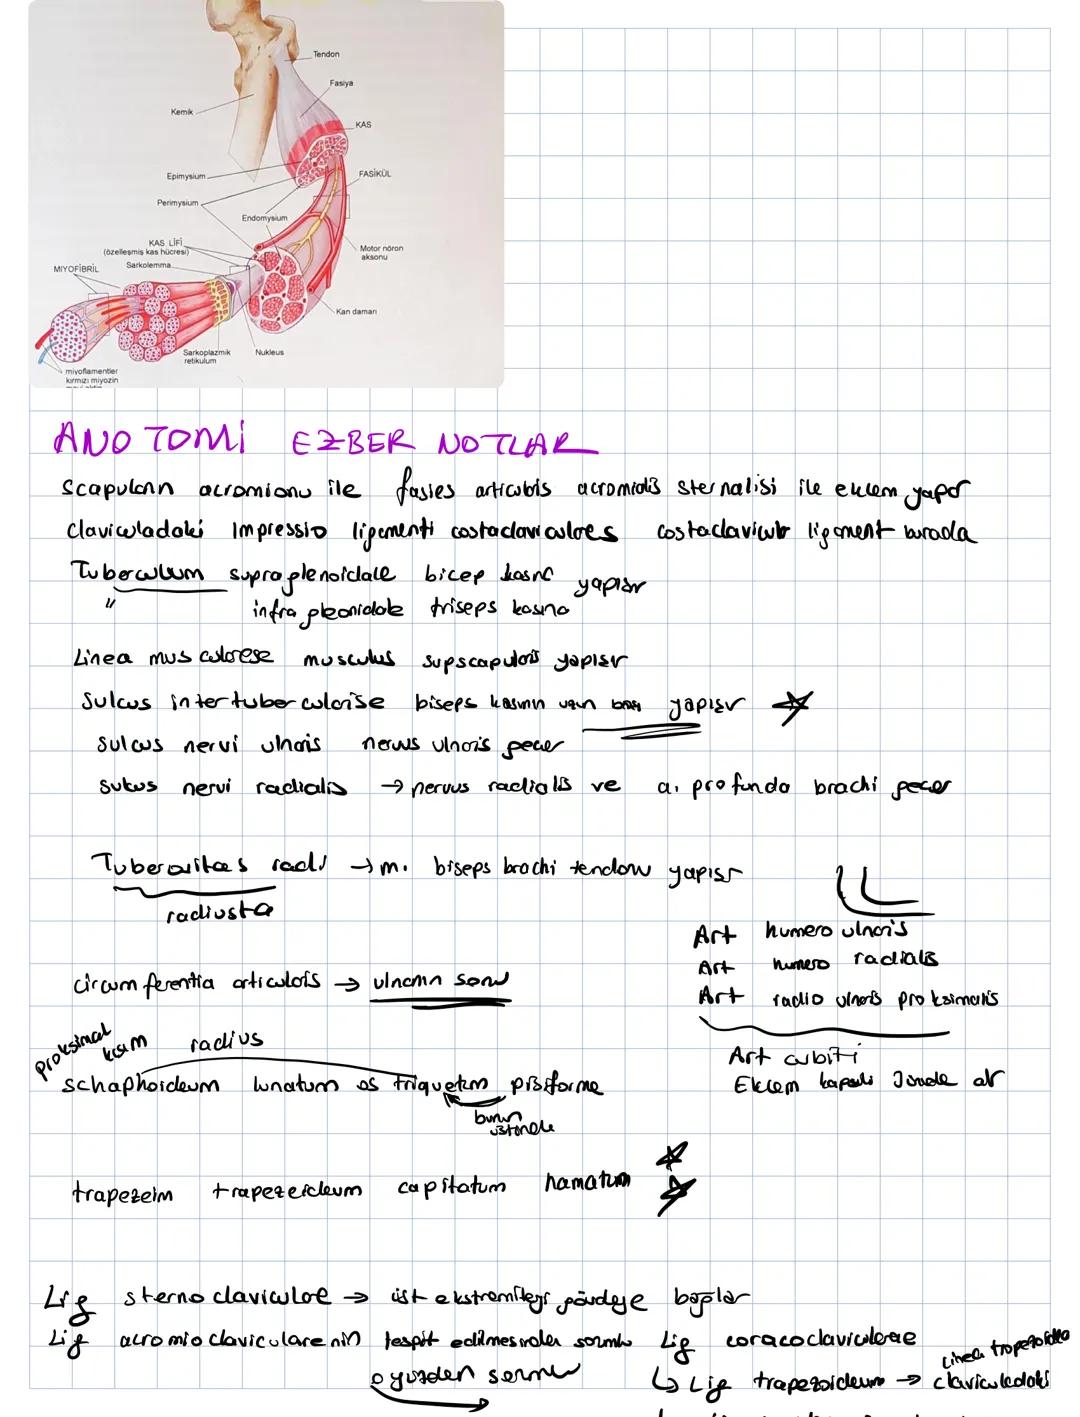 Tendon
Fasiya
Kemik
KAS
Epimysium
FASİKÜL
Perimysium
Endomysium
KAS LİFİ
(özelleşmiş kas hücresi)
Motor nöron
aksonu
MIYOFİBRİL
Sarkolemma
Kan damarı
Sarkoplazmik
retikulum
Nukleus
miyoflamentler
kırmızı miyozin
ANOTOMİ EZBER NOTLAR
Scapulann acromionu ile fasies articularis acromialis sternalisi ile eklem yapar
Claviculadaki Impressio ligamenti costaclaviculares costaclavicular ligament burada
Tuberculum supraglenoidale bicep kasına yapışır
" infragleonidale triseps kasına
Linea musculorese musculus supscapularis yapışır
Sulcus intertubercularise biseps kasının uzun başı yapışır
sulcus nervi ulnaris nervus ulnaris geçer
sulcus nervi radialis → nervus radialis ve a. profunda brachi geçer
Tuberositas radi → m. biseps brachi tendonu yapışır
radiusta
Art humero ulnaris
Art humero radialis
Art radio ulnaris proksimalis
circumferentia articularis → ulnanın sonu
Art cubiti
Eklem kapsülü
proksimal kısım
radius
schaphoideum lunatum os triquetrum prisiforme
bunun üstünde
trapezeim trapezeideum capitatum hamatum
Lig sterno claviculare → üst ekstremiteyi gövdeye bağlar
Lig acromioclavicularenin tespit edilmesinden sorumlu
o yüzden
Lig coracoclaviculerae
↳ Lig trapezoideum → claviculadaki
Linea trapezoidea